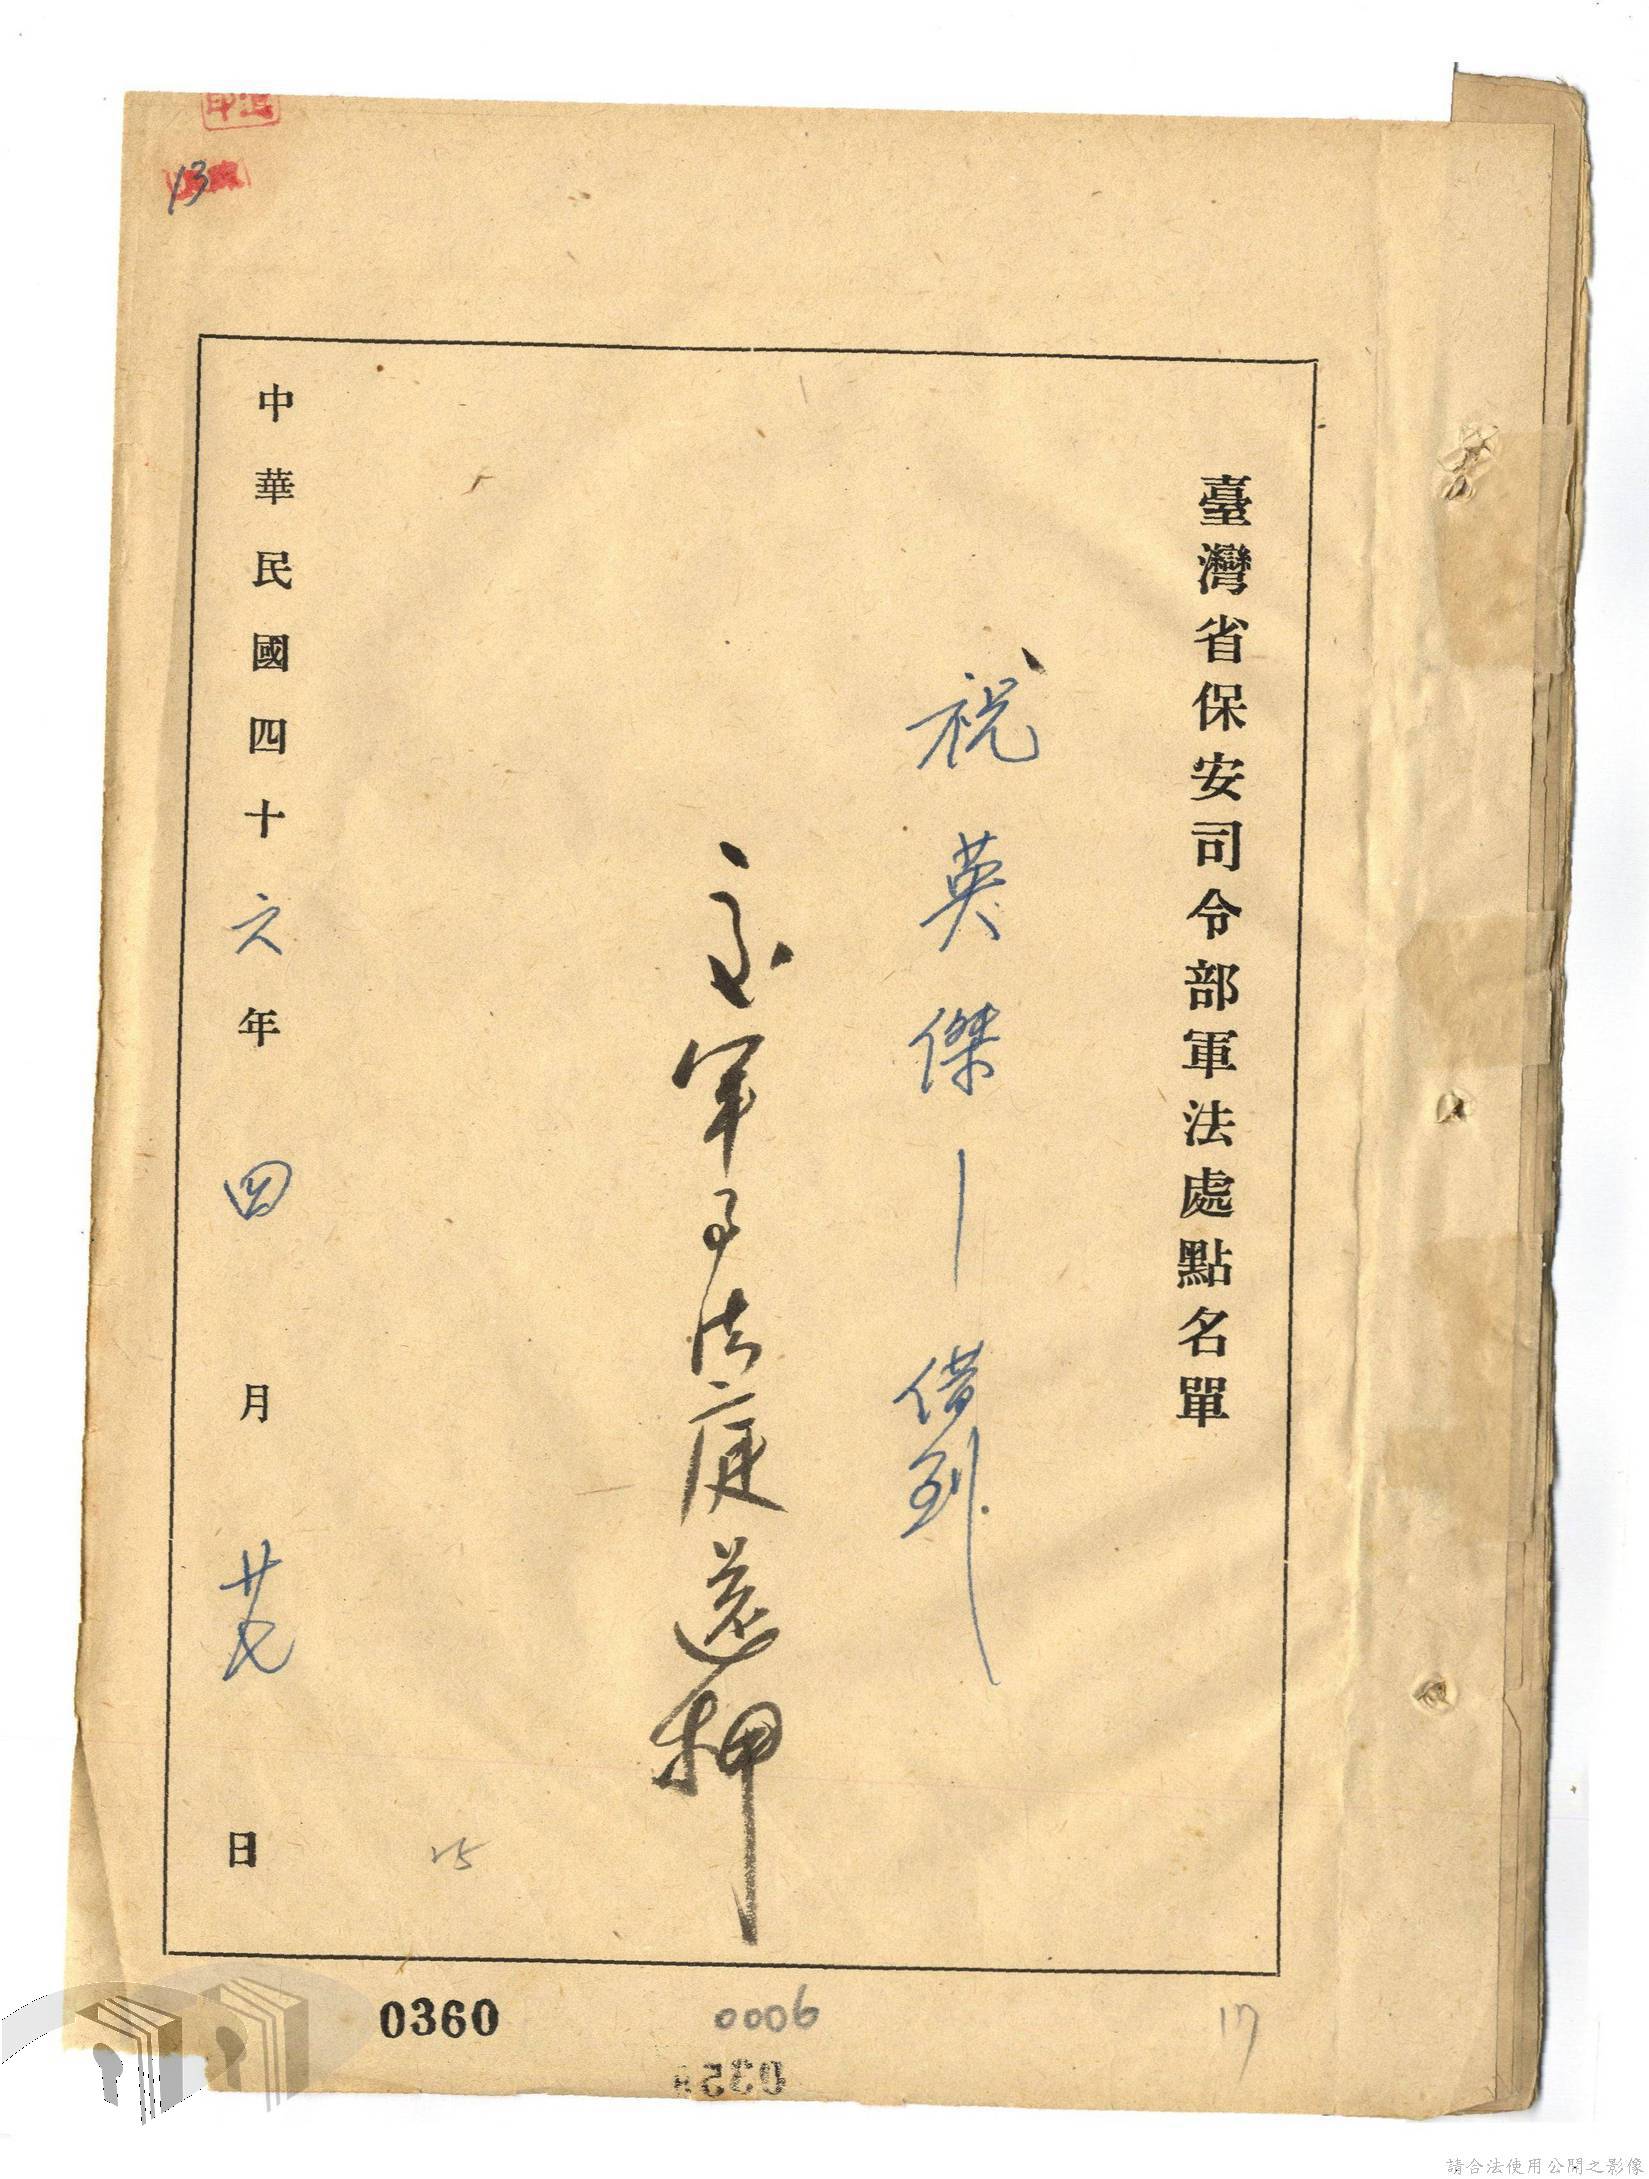 臺灣省保安司令部軍法處點名單
祝英傑—借到
軍事法庭還押
中華民國四十六年四月廿七日
13
25
0360
0006
17
請合法使用公開之影像